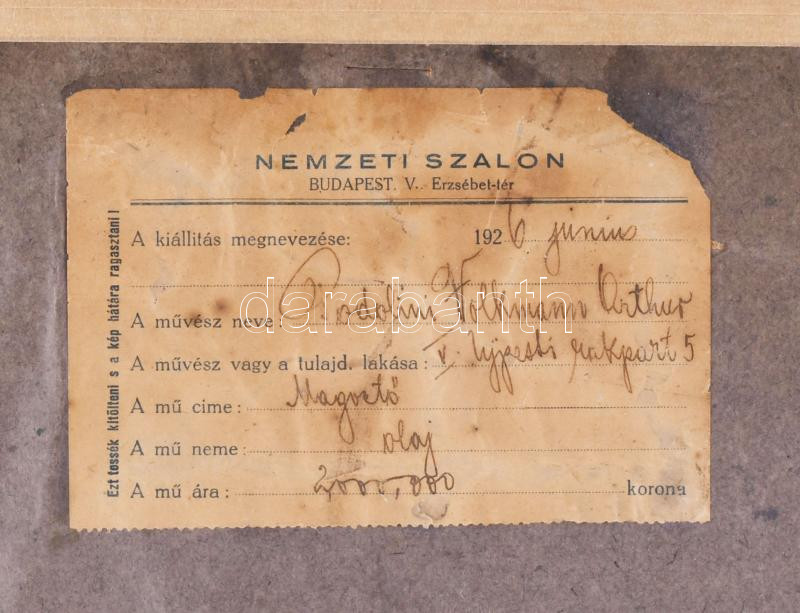 NEMZETI SZALON
BUDAPEST. V., Erzsébet-tér
A kiállitás megnevezése: 1926 junius
A művész neve: Podolini Volkmann Arthur
A művész vagy a tulajd. lakása: V. Ujpesti rakpart 5
A mű cime:
A mű neme: olaj
A mű ára: 2000,000 korona
Ezt tessék kitölteni s a kép hátára ragasztani!
darabanth